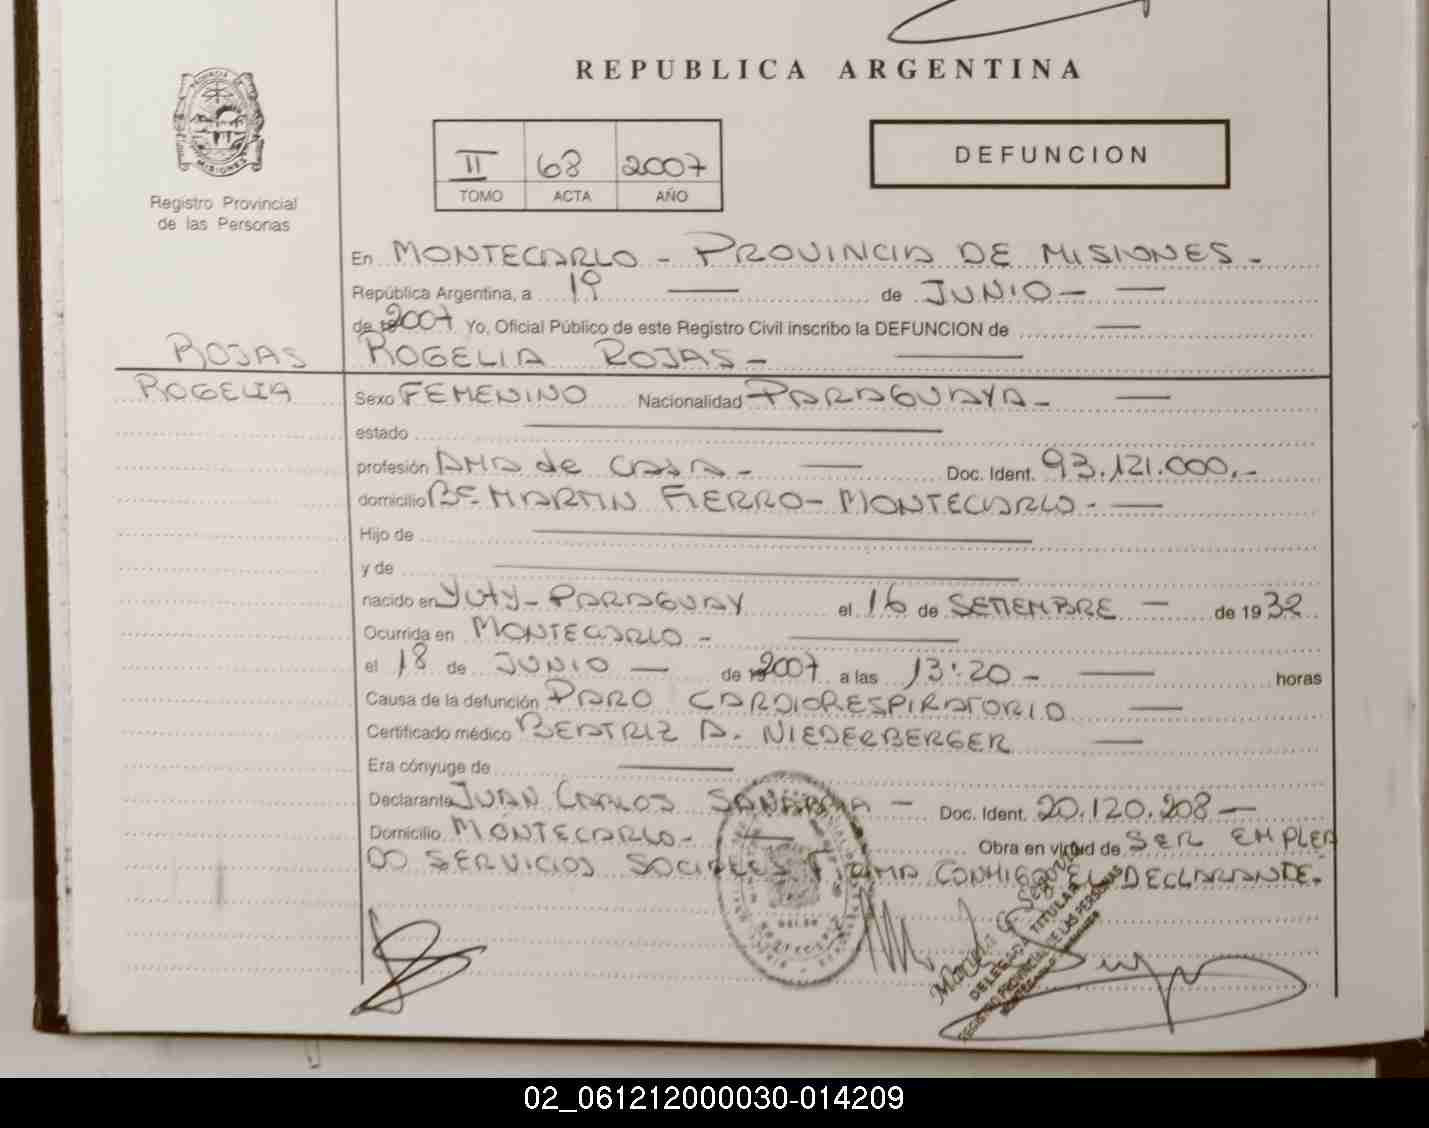 REPUBLICA ARGENTINA
PROVINCIA
MISIONES
Registro Provincial
de las Personas
II 68 2007
TOMO ACTA AÑO
DEFUNCION
En MONTECARLO - PROVINCIA DE MISIONES -
República Argentina, a 19 de JUNIO -
de 2007 Yo, Oficial Público de este Registro Civil inscribo la DEFUNCION de
ROJAS
ROGELIA
ROGELIA ROJAS -
Sexo FEMENINO Nacionalidad PARAGUAYA -
estado
profesión AMA de CASA - Doc. Ident. 93.121.000.-
domicilio Bº MARTIN FIERRO - MONTECARLO -
Hijo de
y de
nacido en YUTY - PARAGUAY el 16 de SETIEMBRE - de 1932
Ocurrida en MONTECARLO -
el 18 de JUNIO - de 2007 a las 13:20 - horas
Causa de la defunción PARO CARDIORESPIRATORIO
Certificado médico BEATRIZ A. NIEDERBERGER
Era cónyuge de
Declarante JUAN CARLOS SANABRIA - Doc. Ident. 20.120.208 -
Domicilio MONTECARLO - Obra en virtud de SER EMPLEA
DO SERVICIOS SOCIALES FIRMA CONMIGO EL DECLARANDE.
DELEGADA TITULAR
REGISTRO PROVINCIAL DE LAS PERSONAS
02_061212000030-014209